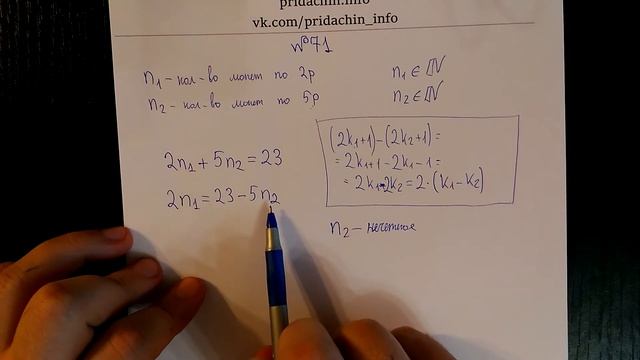 pridachin.info
vk.com/pridachin_info
№71
n₁ - кол-во монет по 2р
n₁ ∈ ℕ
n₂ - кол-во монет по 5р
n₂ ∈ ℕ
2n₁ + 5n₂ = 23
2n₁ = 23 - 5n₂
(2k₁+1) - (2k₂+1) =
= 2k₁+1 - 2k₂ - 1 =
= 2k₁ - 2k₂ = 2·(k₁ - k₂)
n₂ - нечетное